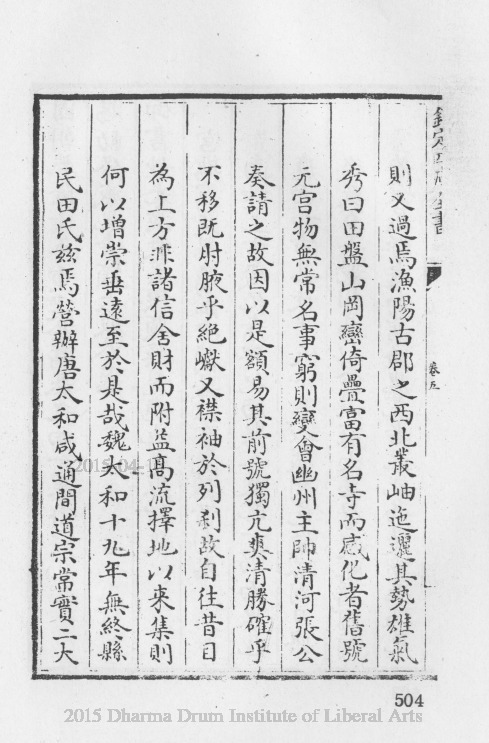 欽定四庫全書
卷五
則又過焉漁陽古郡之西北叢岫迤邐其勢雄氣
秀曰田盤山岡巒倚疊富有名寺而感化者舊號
元宫物無常名事窮則變會幽州主帥清河張公
奏請之故因以是額易其前號獨亢爽清勝確乎
不移既肘腋乎絶巘又襟袖於列刹故自往昔目
為上方非諸信舍財而附益高流擇地以來集則
何以增崇垂遠至於是哉魏太和十九年無終縣
民田氏兹焉營辦唐太和咸通間道宗常實二大
2015-04-1
504
2015 Dharma Drum Institute of Liberal Arts